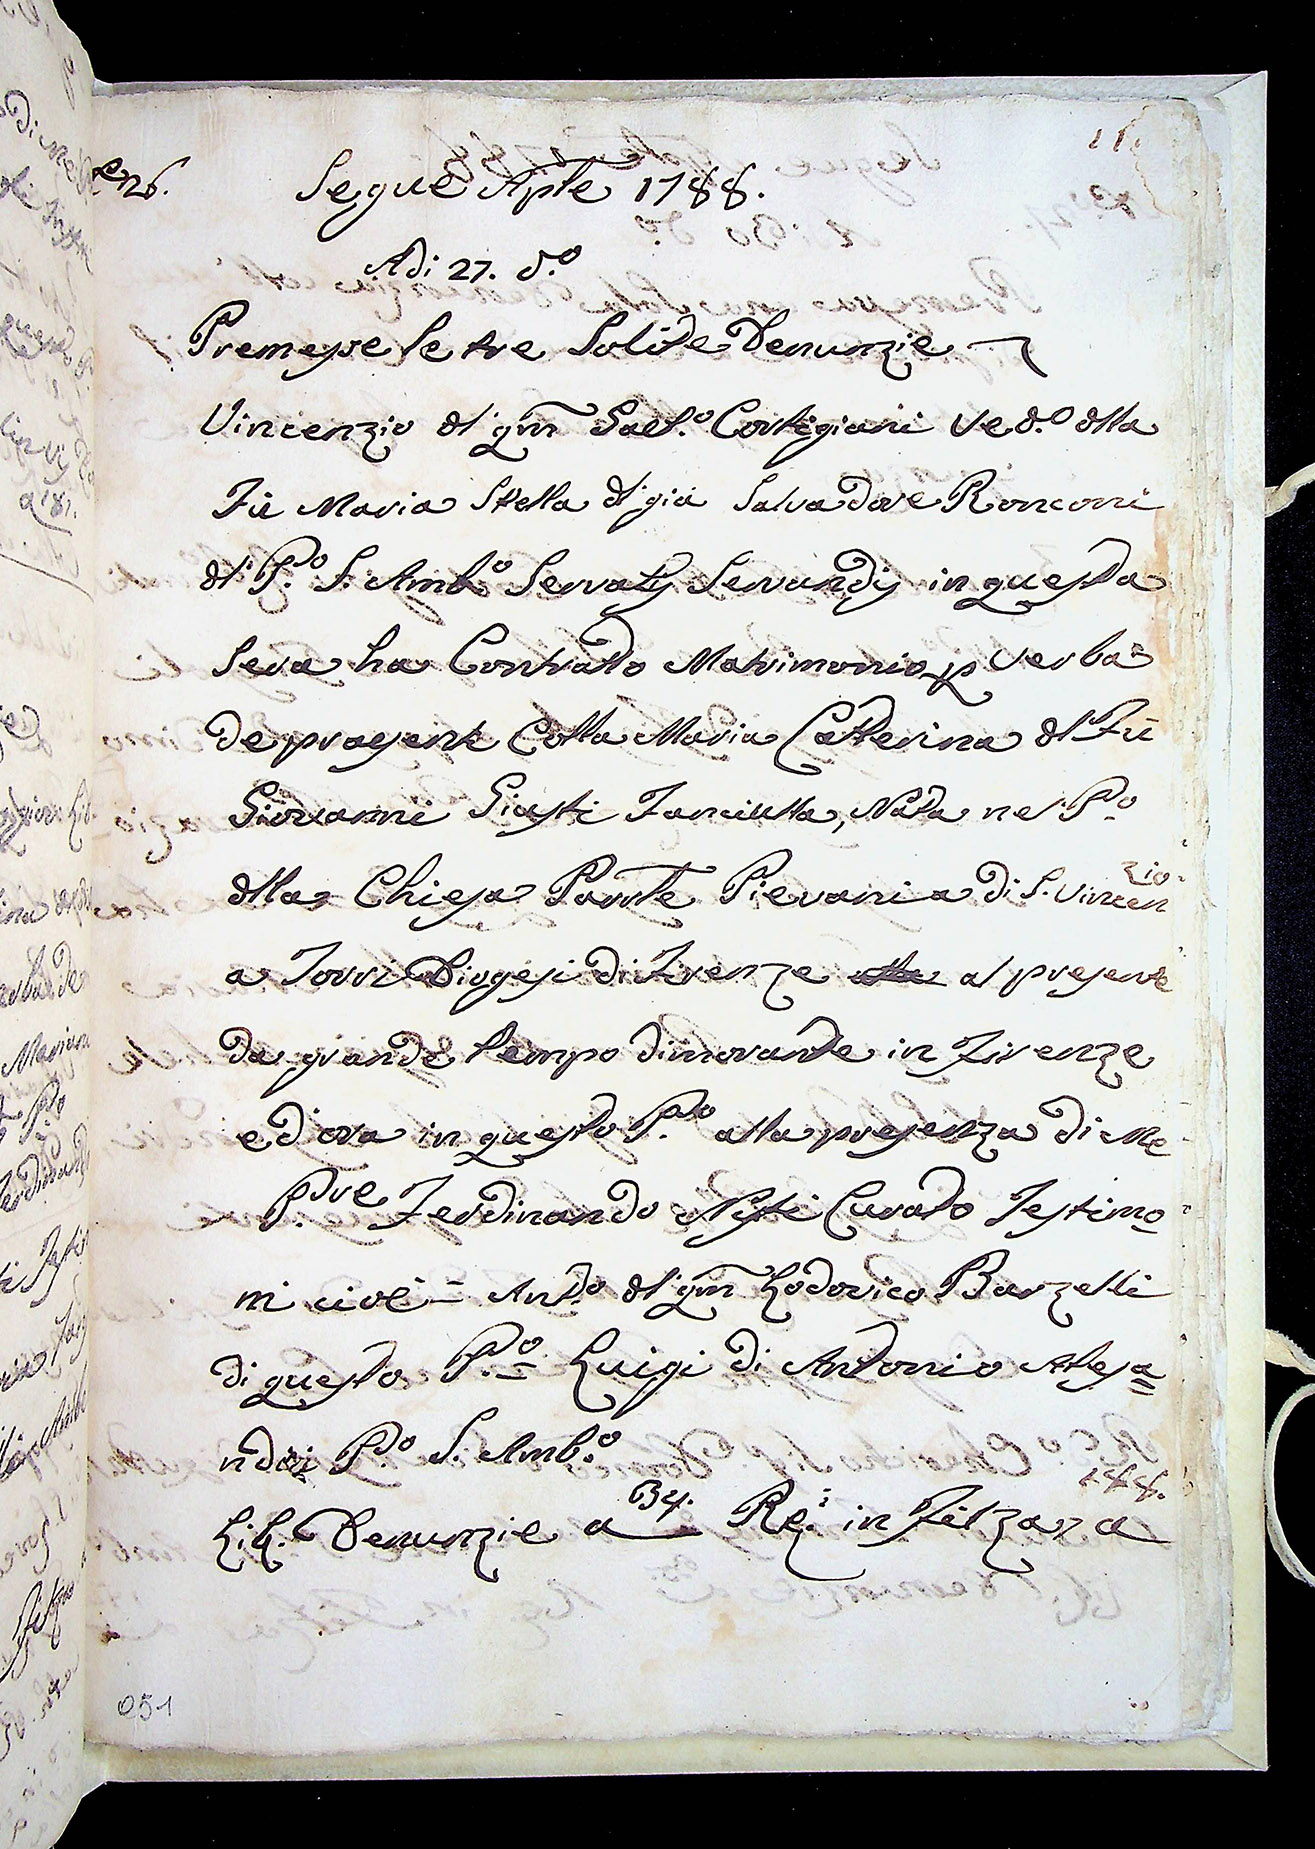 N.26.
Segue Aple 1788.
Adi 27. do
Premesse le tre Solite Denunzie
Vincenzio dl qm Gaet.o Cortigiani Ved.o dlla
Fù Maria Stella dl già Salvadore Ronconi
dl P.o S. Amb.o Servatis Servandis in questa
sera ha Contratto Matrimonio p verba
de presenti Colla Maria Catterina dl Fù
Giovanni Giusti Fanciulla, Nata nel P.o
dlla Chiesa Parrle Pievania di S. Vincen
zio
a Torri Diogesi di Firenze al presente
da grande tempo dimorante in Firenze
ed ora in questo P.lo alla presenza di Me
P.dre Ferdinando Nesti Curato Testimo
ni cioè = Ant.o dl qm Lodovico Barzelli
di questo P.o = Luigi di Antonio Alesa=
ndri P.o S. Amb.o
Lib. Denunzie a 34. Re.i in Filza a
188.
051